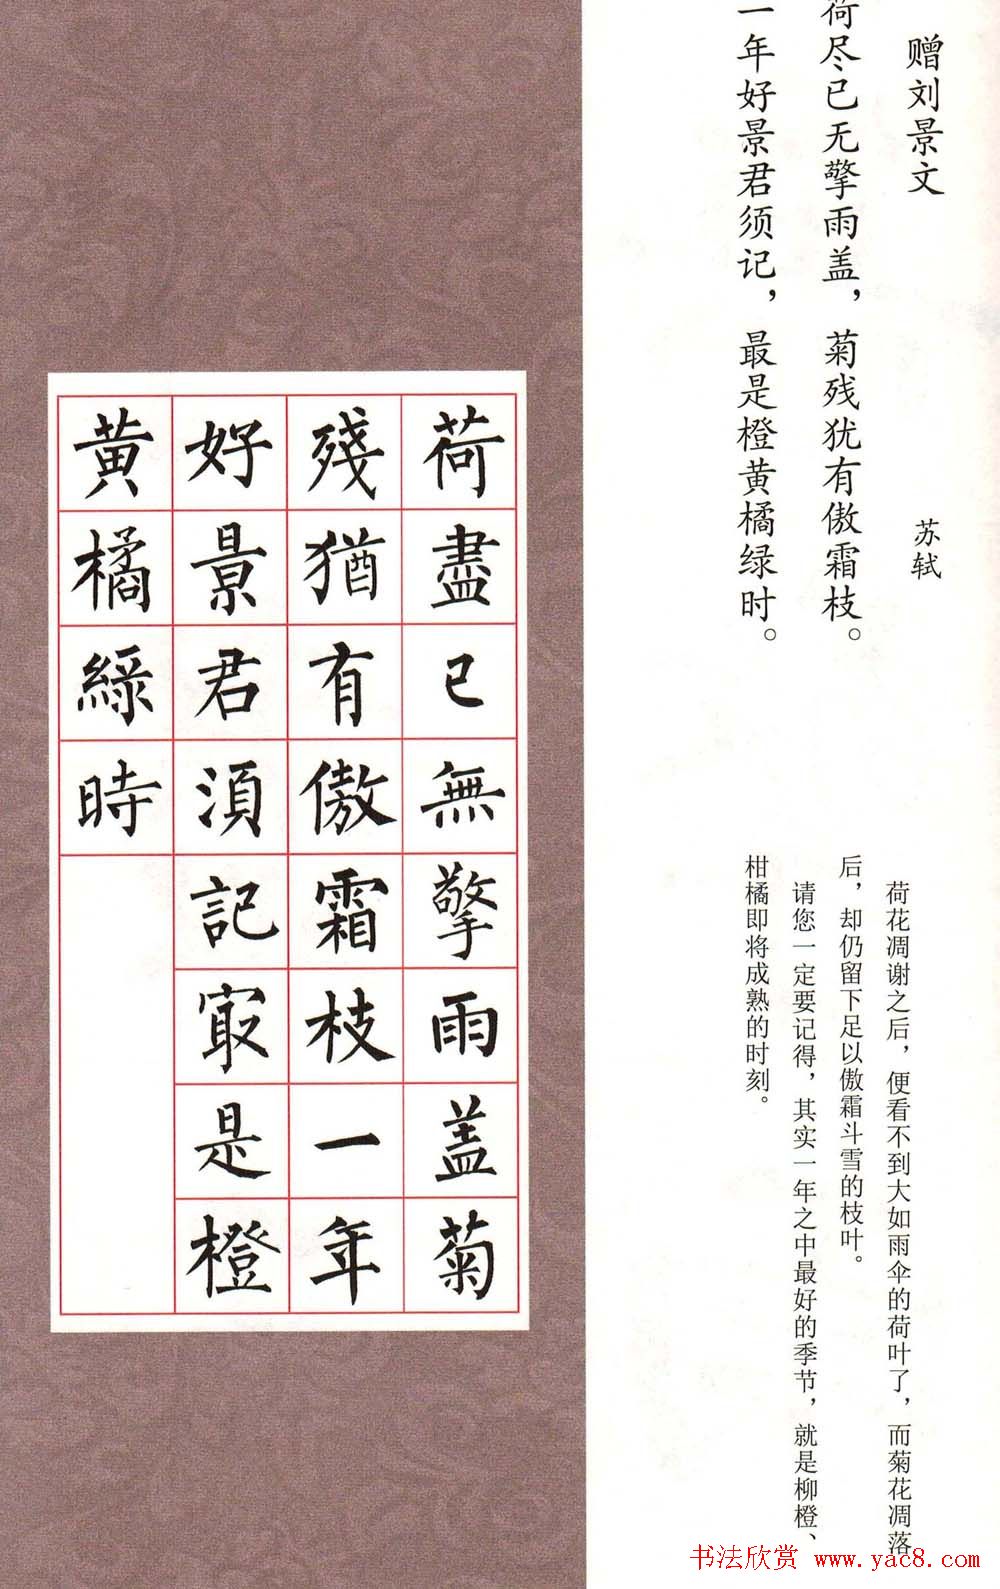 赠刘景文
苏轼
荷尽已无擎雨盖，菊残犹有傲霜枝。
一年好景君须记，最是橙黄橘绿时。
荷花凋谢之后，便看不到大如雨伞的荷叶了，而菊花凋落
后，却仍留下足以傲霜斗雪的枝叶。
请您一定要记得，其实一年之中最好的季节，就是柳橙、
柑橘即将成熟的时刻。
荷盡已無擎雨盖菊
殘猶有傲霜枝一年
好景君須記㝡是橙
黄橘緑時
书法欣赏 www.yac8.com